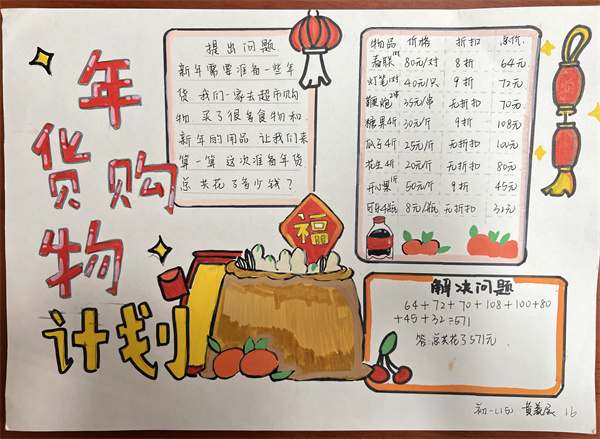 年
货购
物
计划
提出问题
新年需要准备一些年
货 我们一家去超市购
物 买了很多食物和
新年的用品 让我们来
算一算 这次准备年货
总共花了多少钱？
福
物品 价格 折扣 总价
春联 80元/对 8折 64元
灯笼 40元/只 9折 72元
鞭炮 35元/串 无折扣 70元
糖果4斤 30元/斤 9折 108元
瓜子4斤 25元/斤 无折扣 100元
花生4斤 20元/斤 无折扣 80元
开心果 50元/斤 9折 45元
可乐4瓶 8元/瓶 无折扣 32元
解决问题
64+72+70+108+100+80
+45+32=571
答：总共花了571元.
初一(15) 黄 16